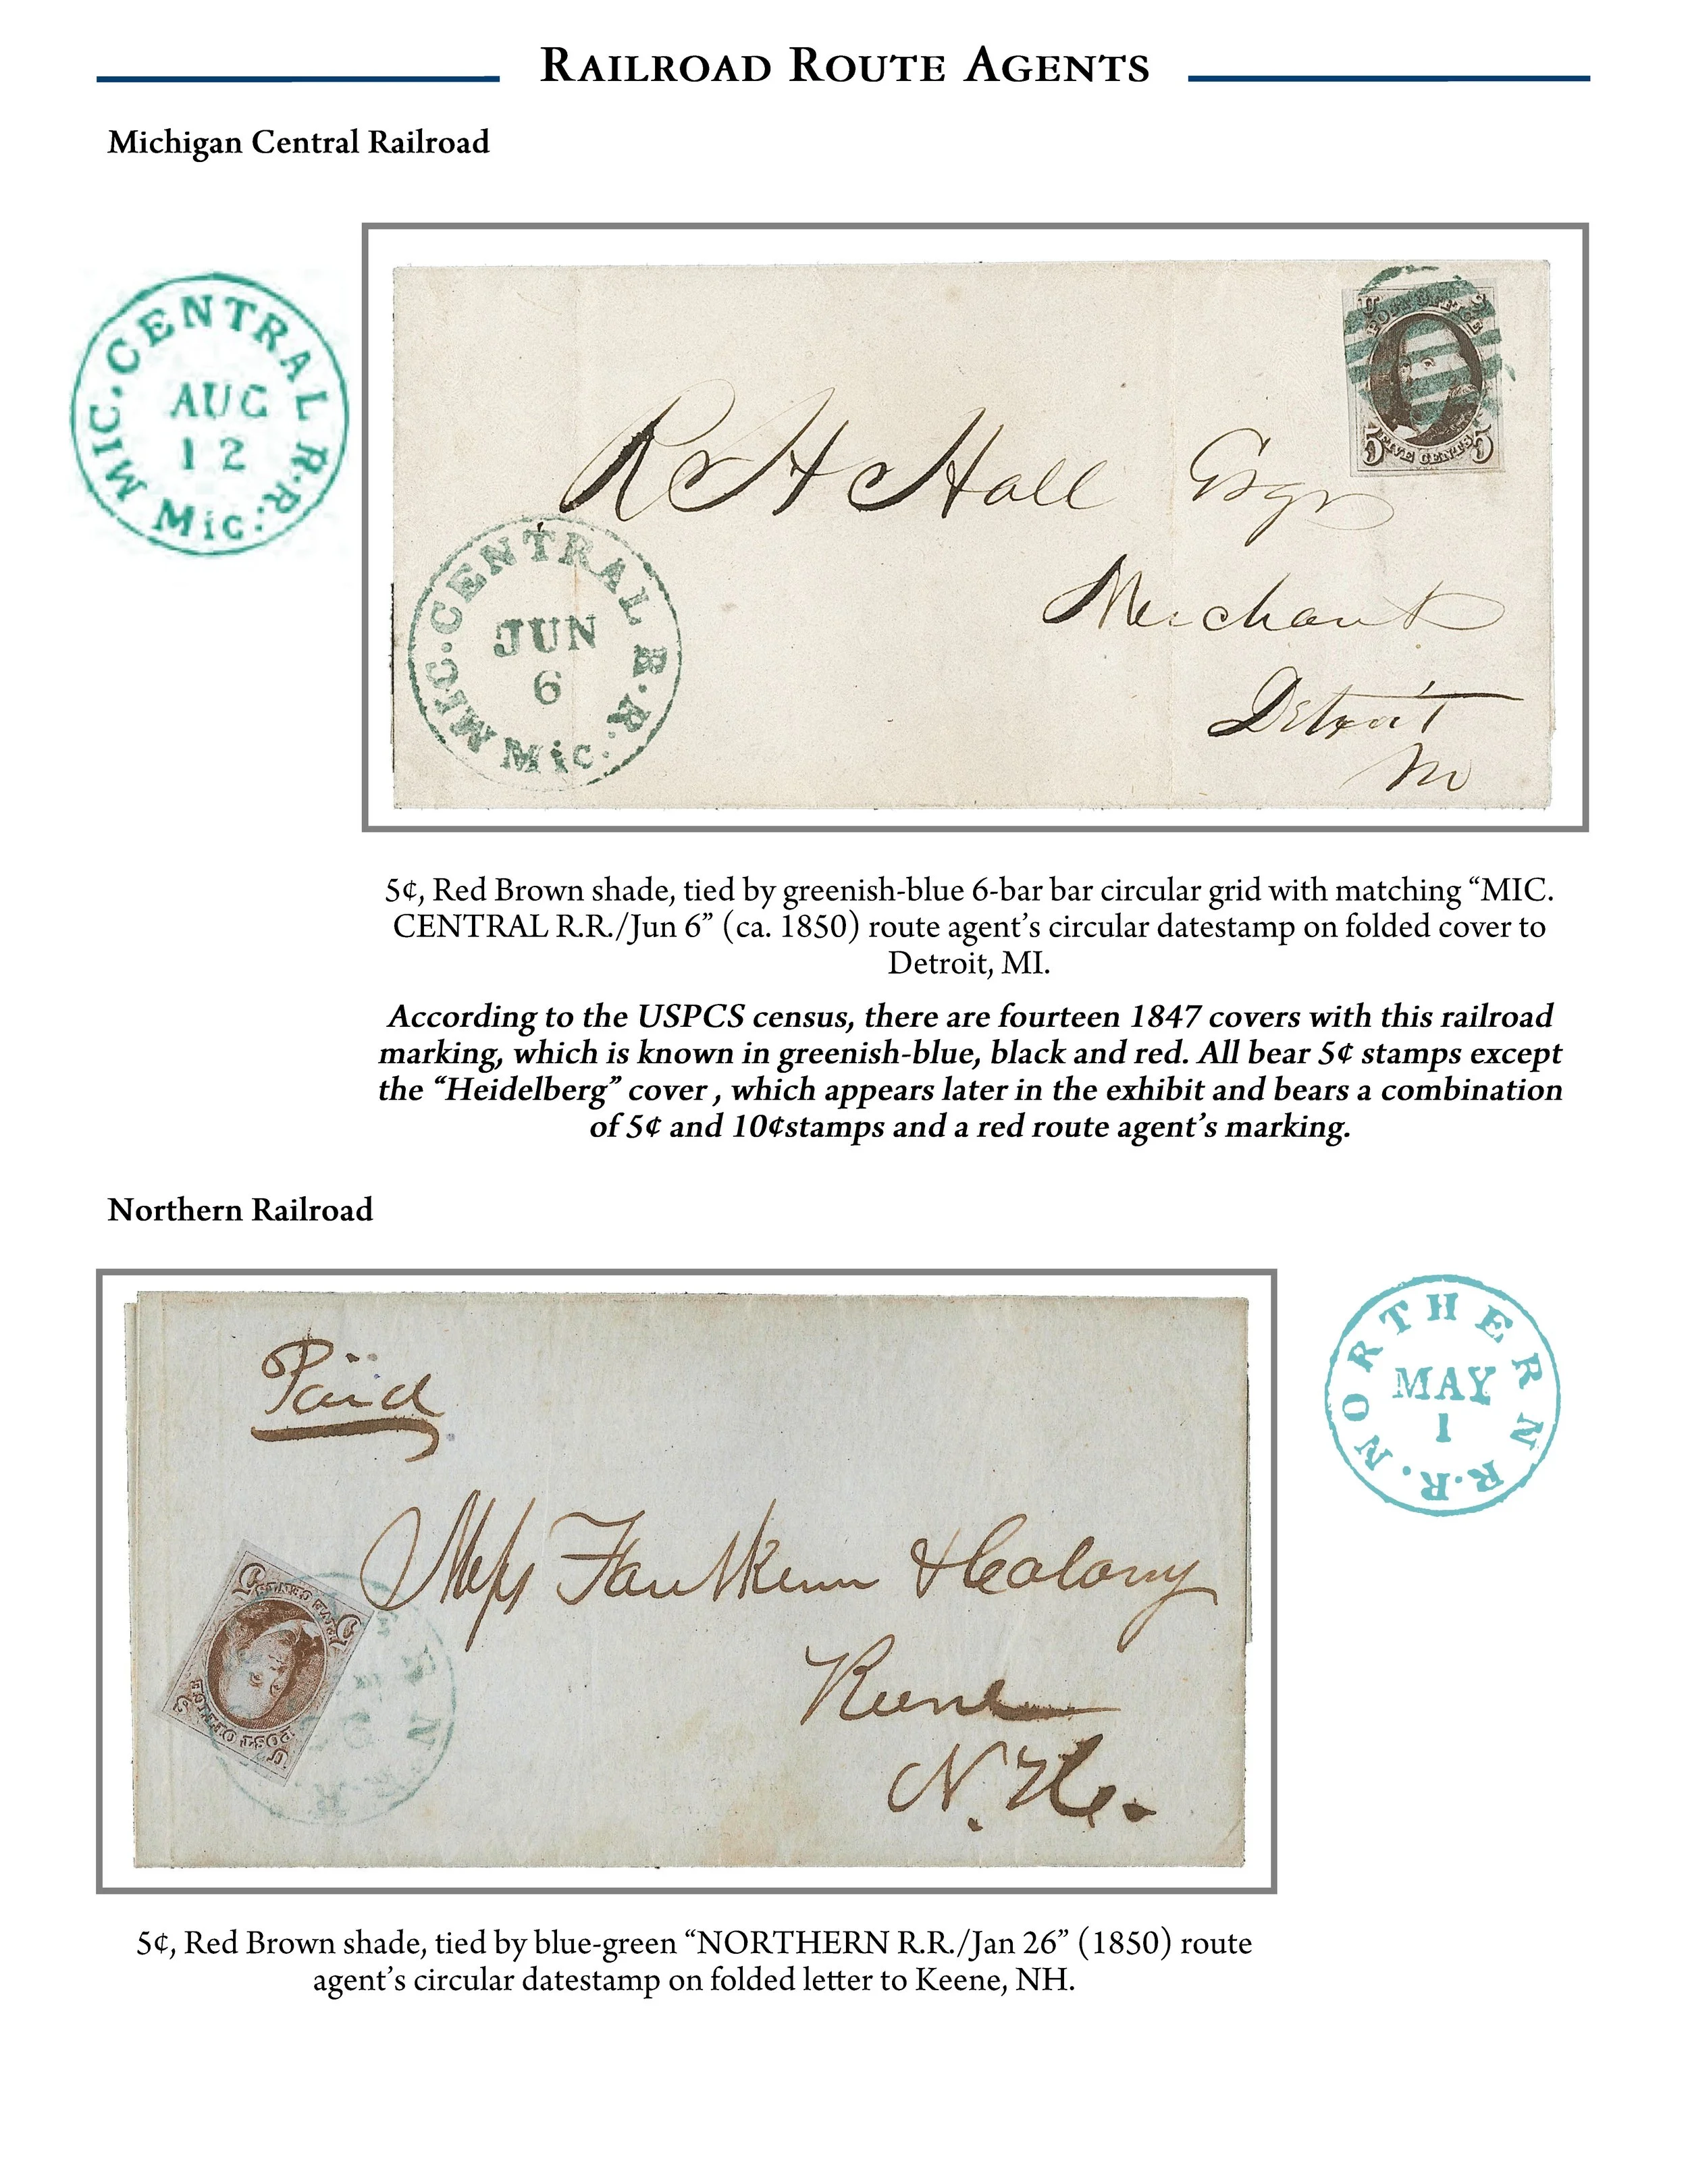 RAILROAD ROUTE AGENTS
Michigan Central Railroad
MIC. CENTRAL R.R.
AUG
12
Mic:
U S
POST OFFICE
5 FIVE CENTS 5
R H Hall Esqr
Merchant
Detroit
MIC. CENTRAL R.R.
JUN
6
Mic:
5¢, Red Brown shade, tied by greenish-blue 6-bar bar circular grid with matching “MIC.
CENTRAL R.R./Jun 6” (ca. 1850) route agent’s circular datestamp on folded cover to
Detroit, MI.
According to the USPCS census, there are fourteen 1847 covers with this railroad
marking, which is known in greenish-blue, black and red. All bear 5¢ stamps except
the “Heidelberg” cover , which appears later in the exhibit and bears a combination
of 5¢ and 10¢stamps and a red route agent’s marking.
Northern Railroad
Paid
NORTHERN R.R.
MAY
1
Faulkner & Colony
Keene
N. H.
5 FIVE CENTS 5
POST OFFICE
U S
5¢, Red Brown shade, tied by blue-green “NORTHERN R.R./Jan 26” (1850) route
agent’s circular datestamp on folded letter to Keene, NH.